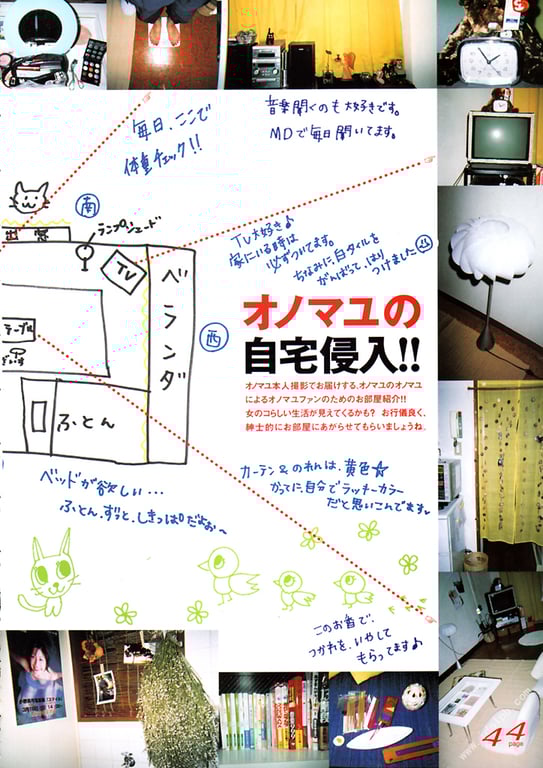 毎日、ここで
体重チェック!!
音楽聞くのも大好きです。
MDで毎日聞いてます。
南
出窓
ランプシェード
TV
ベランダ
TV大好き♪
家にいる時は
必ずついてます。
ちなみに、白タイルを
がんばって、はりつけました
西
テーブル
ふとん
オノマユの
自宅侵入!!
オノマユ本人撮影でお届けする、オノマユのオノマユ
によるオノマユファンのためのお部屋紹介!!
女のコらしい生活が見えてくるかも? お行儀良く、
紳士的にお部屋にあがらせてもらいましょうね。
ベッドが欲しい…
ふとん、ずっと、しきっぱだよぉ〜
カーテン&のれんは、黄色☆
かってに、自分でラッキーカラー
だと思いこんでます。
このお香で、
つかれを、いやして
もらってます♪
44
page